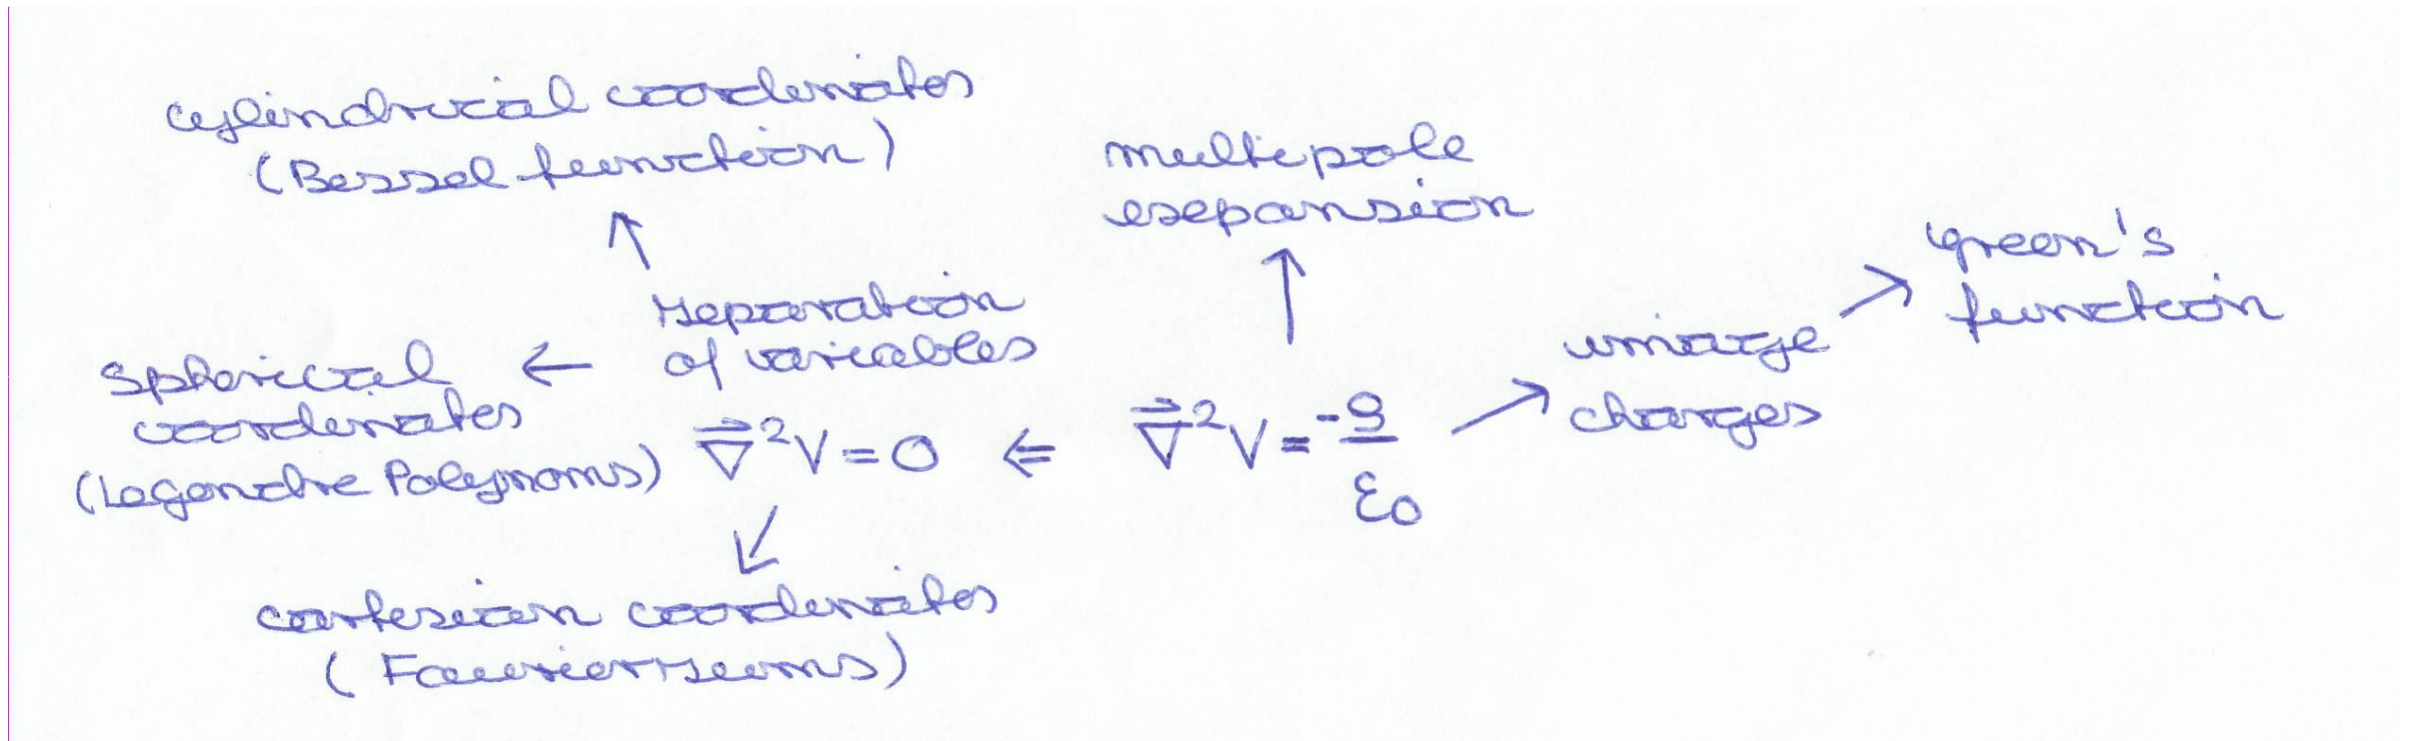 cylindrical coordinates
(Bessel function)
multipole
expansion
green's
function
separation
of variables
image
charges
Spherical
coordinates
(Legendre Polynoms)
∇⃗²V = 0 ⇐ ∇⃗²V = -ρ/ε₀
cartesian coordinates
(Fourier sums)